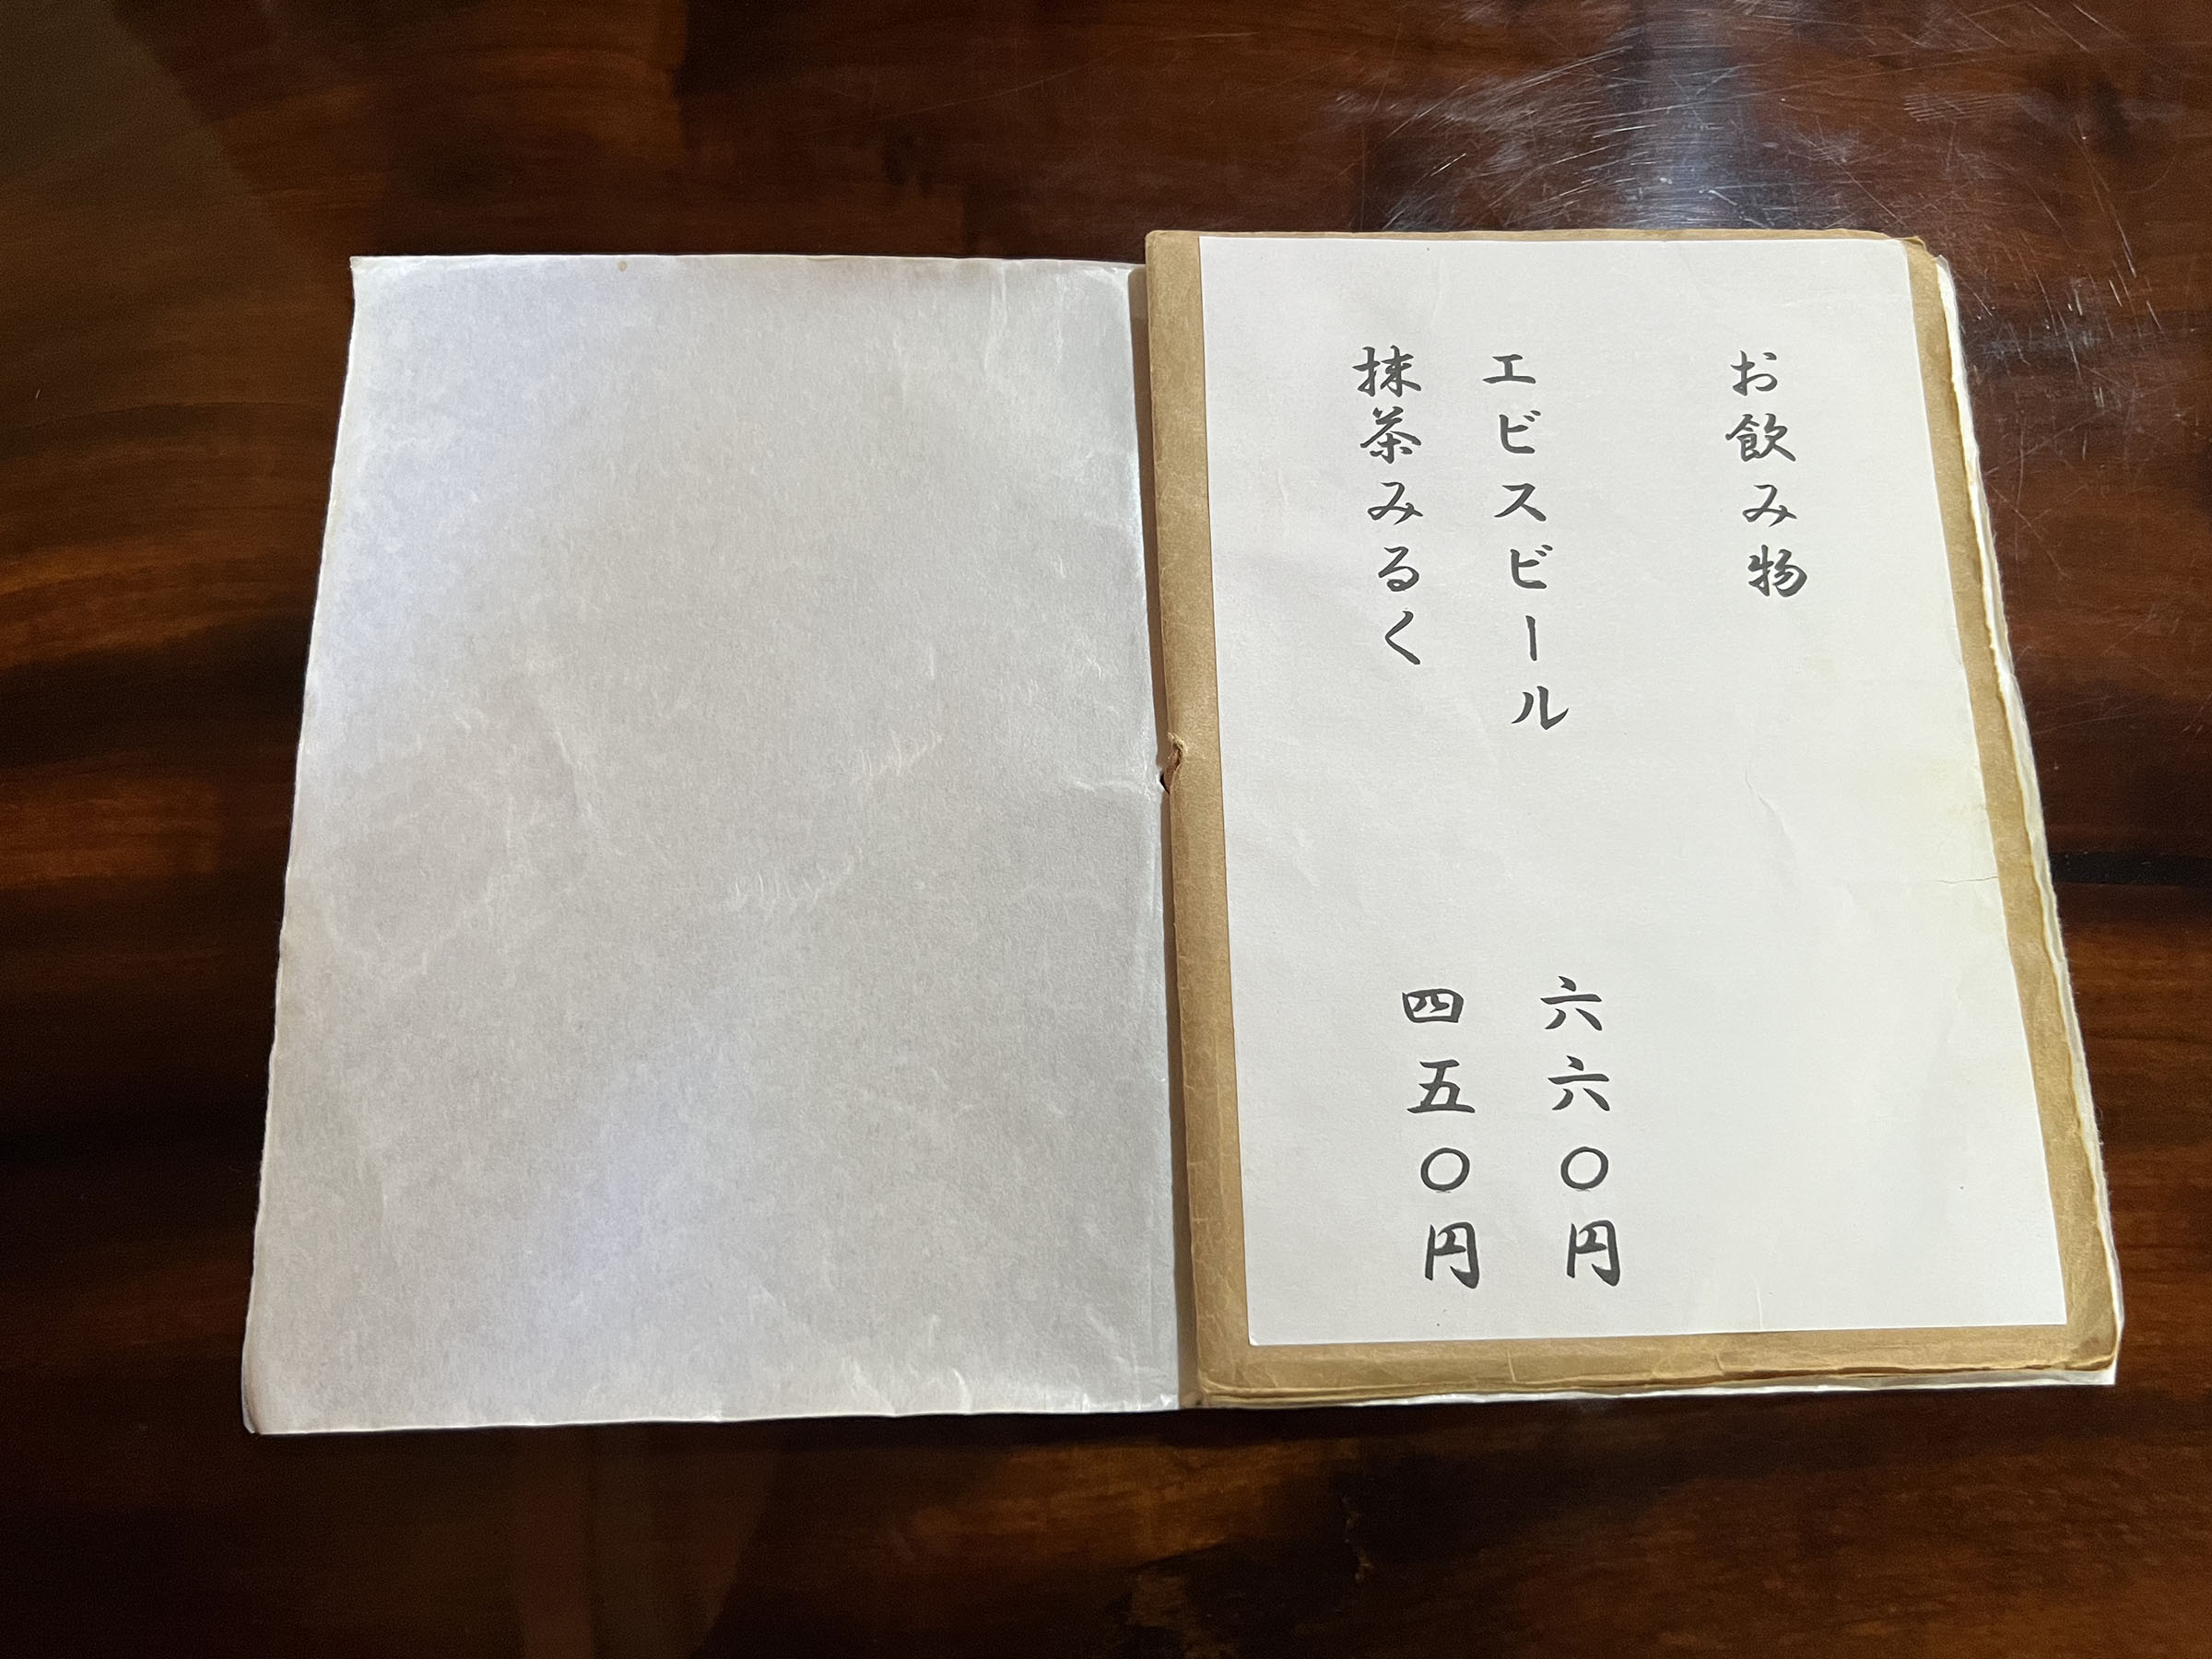 お飲み物
エビスビール 六六〇円
抹茶みるく 四五〇円